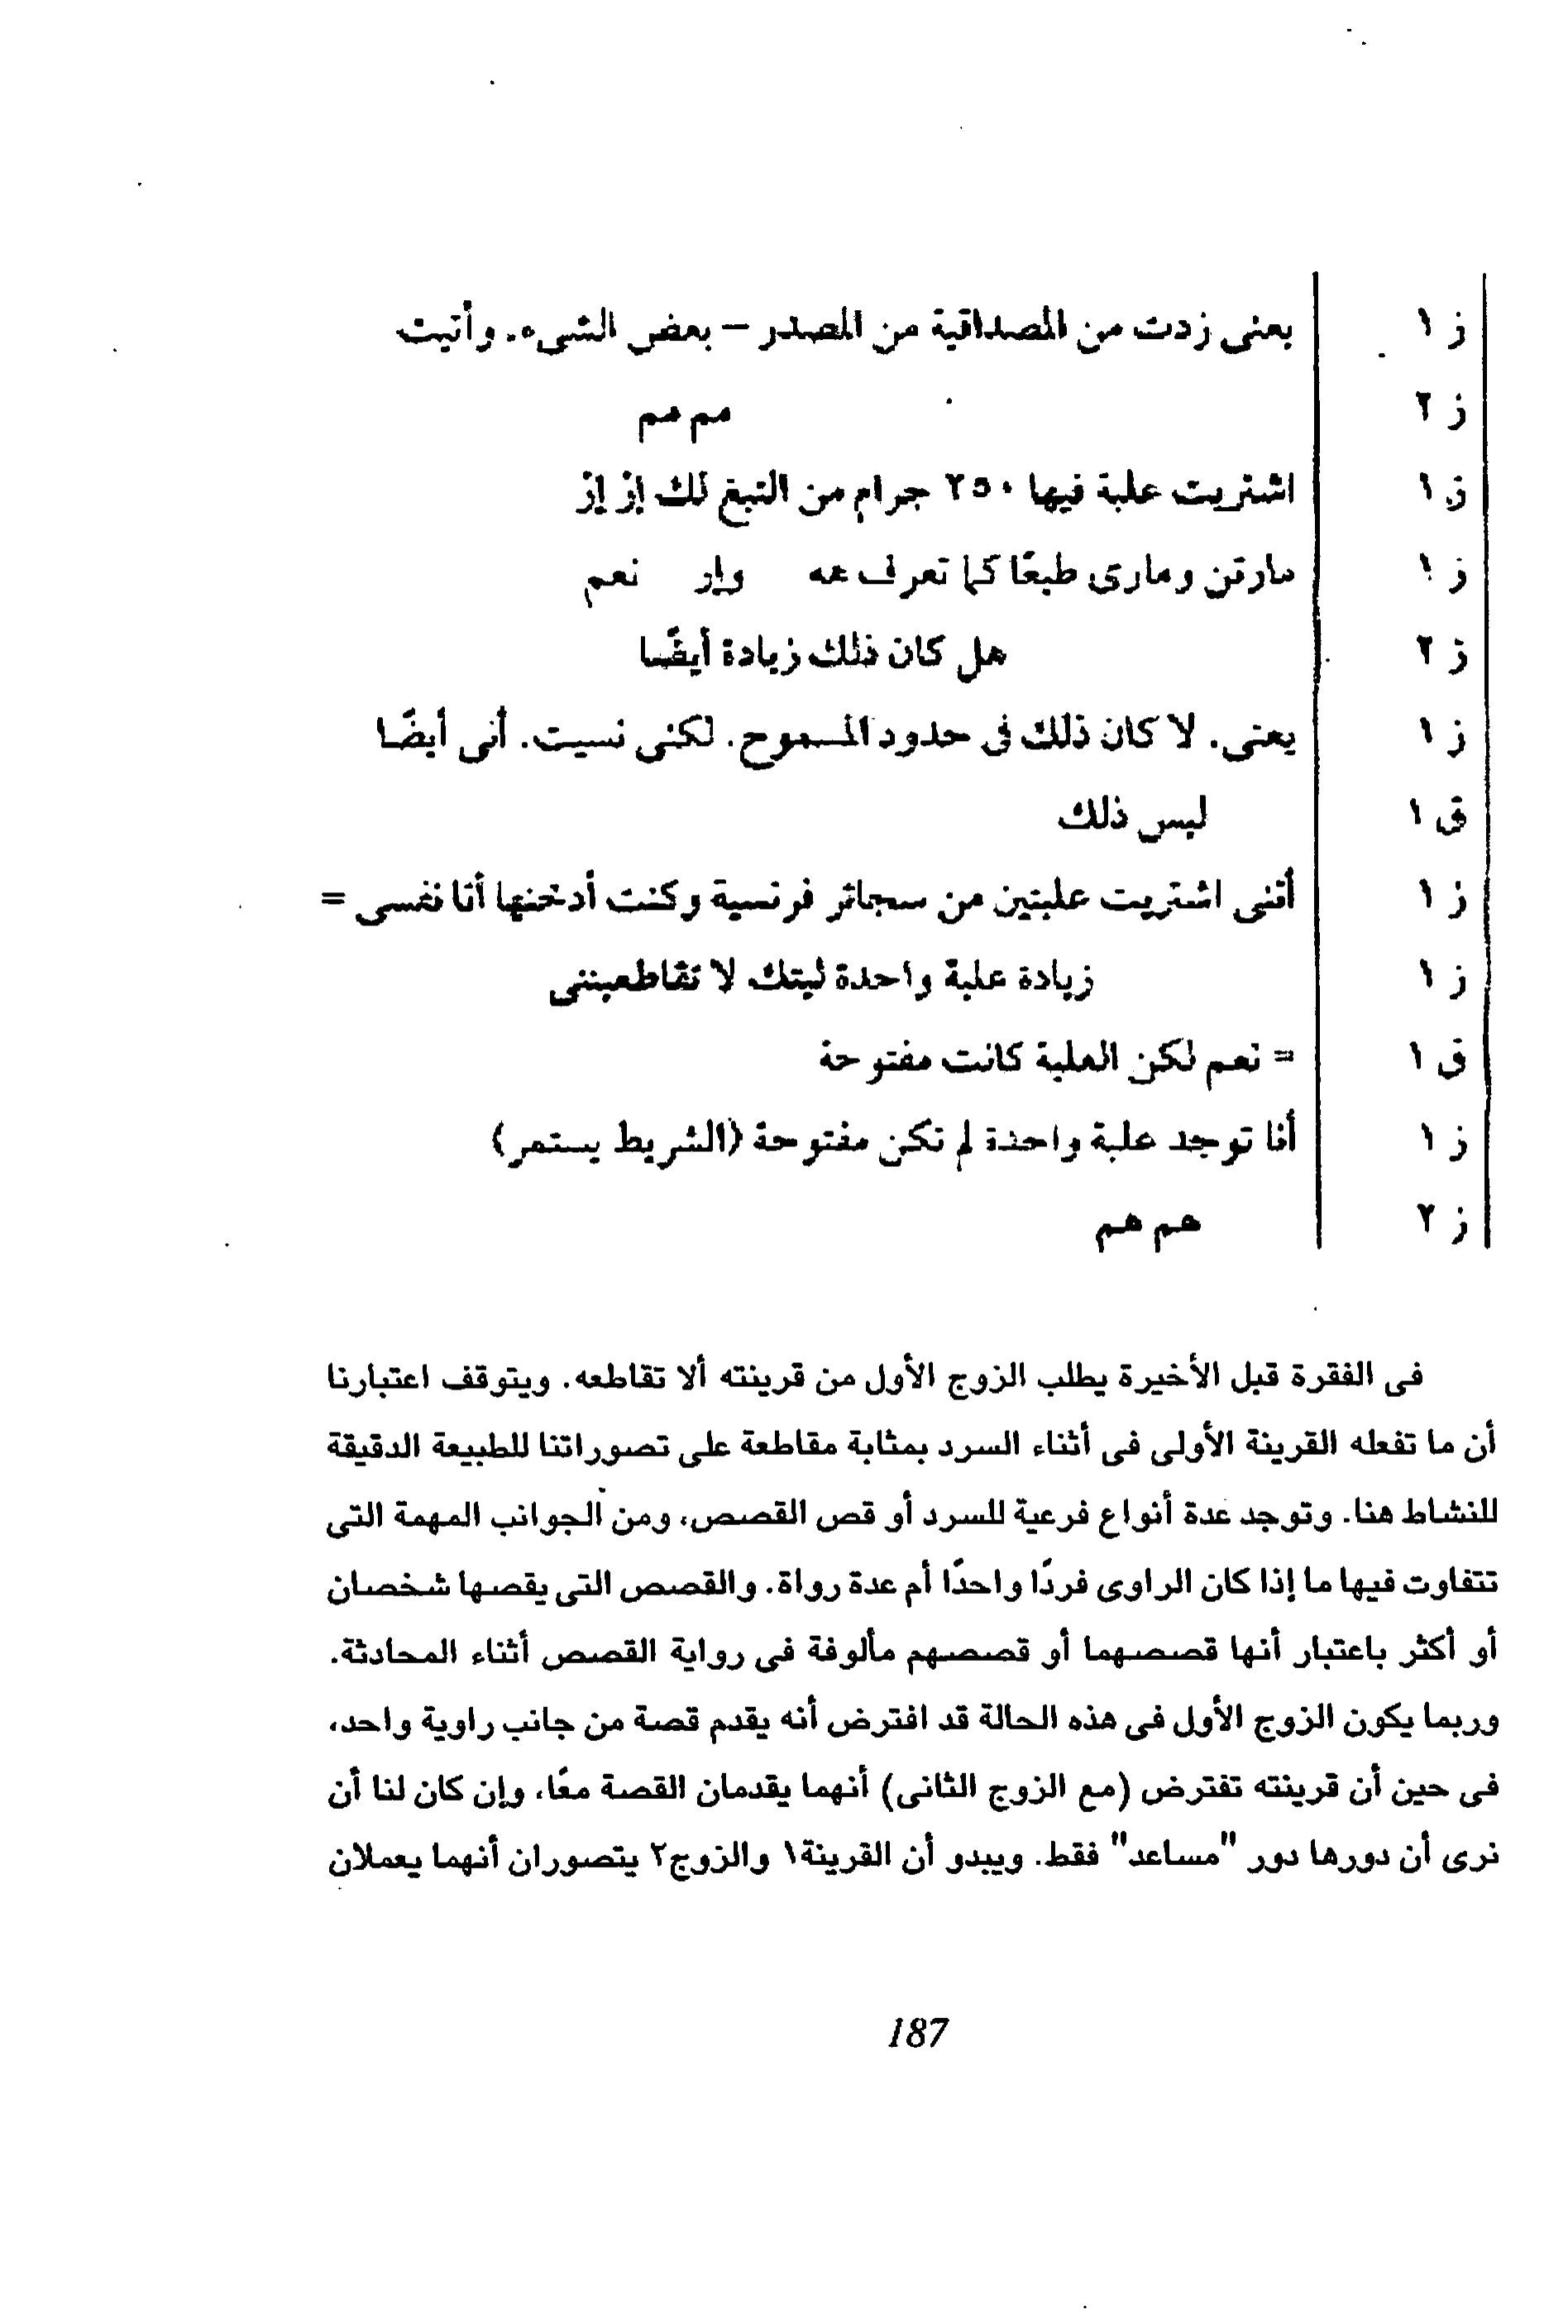 ز ١ يعنى زدت من المصداقية من المصدر – بعض الشىء. وأتيت
ز ٢ هم هم
ز ١ اشتريت علبة فيها ٢٥٠ جرام من التبغ لك إز إز
ز ١ مارتن ومارى طبعًا كما تعرف عه وإر نعم
ز ٢ هل كان ذلك زيادة أيضًا
ز ١ يعنى. لا كان ذلك فى حدود المسموح. لكنى نسيت. أنى أيضًا
ق ١ ليس ذلك
ز ١ أننى اشتريت علبتين من سجائر فرنسية وكنت أدخنها أنا نفسى =
ز ١ زيادة علبة واحدة ليتك لا تقاطعيننى
ق ١ = نعم لكن العلبة كانت مفتوحة
ز ١ أنا توجد علبة واحدة لم تكن مفتوحة (الشريط يستمر)
ز ٢ هم هم
فى الفقرة قبل الأخيرة يطلب الزوج الأول من قرينته ألا تقاطعه. ويتوقف اعتبارنا
أن ما تفعله القرينة الأولى فى أثناء السرد بمثابة مقاطعة على تصوراتنا للطبيعة الدقيقة
للنشاط هنا. وتوجد عدة أنواع فرعية للسرد أو قص القصص، ومن الجوانب المهمة التى
تتفاوت فيها ما إذا كان الراوى فردًا واحدًا أم عدة رواة. والقصص التى يقصها شخصان
أو أكثر باعتبار أنها قصصهما أو قصصهم مألوفة فى رواية القصص أثناء المحادثة.
وربما يكون الزوج الأول فى هذه الحالة قد افترض أنه يقدم قصة من جانب راوية واحد،
فى حين أن قرينته تفترض (مع الزوج الثانى) أنهما يقدمان القصة معًا، وإن كان لنا أن
نرى أن دورها دور "مساعد" فقط. ويبدو أن القرينة١ والزوج٢ يتصوران أنهما يعملان
187